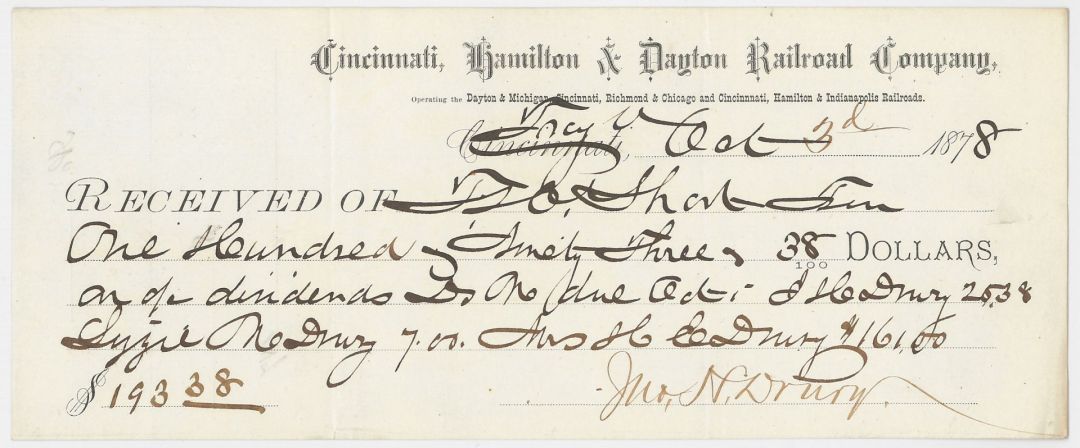 Cincinnati, Hamilton & Dayton Railroad Company,
Operating the Dayton & Michigan, Cincinnati, Richmond & Chicago and Cincinnati, Hamilton & Indianapolis Railroads.
Troy O
Cincinnati, Oct 3d 1878
RECEIVED OF F. H. Short
One Hundred & Ninety Three & 38/100 DOLLARS,
on a/c dividends D & M due Oct 1 J H Drury 25.38
Lyzzie M Drury 7.00. Mrs H C Drury $161.00
$193 38
Jno. N. Drury.